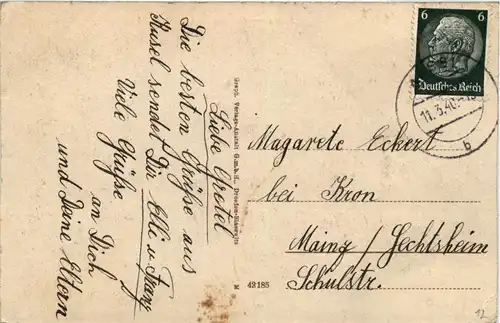 Liebe Gretel
Die besten Grüße aus
Kusel sendet Dir Elli u. Franz
Viele Grüße
an Dich
und Deine Eltern
Graph. Verlags-Anstalt G.m.b.H., Dresden-Niedersedlitz
K 42185
6 6
Deutsches Reich
11.3.40
b
Magarete Eckert
bei Kron
Mainz / Hechtsheim
Schulstr.
12